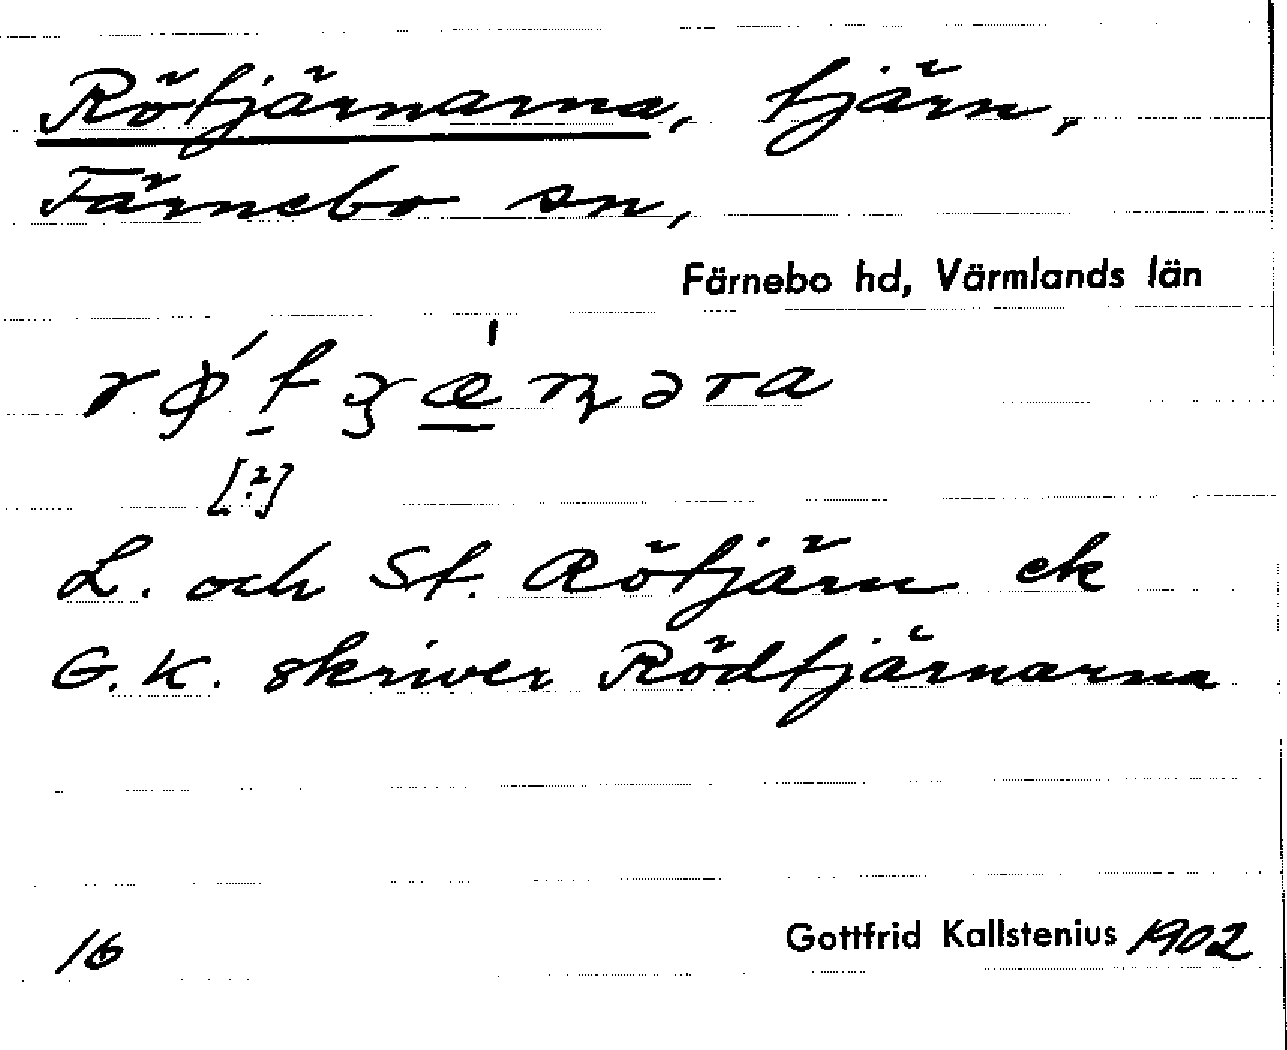 Rötjärnarna, tjärn,
Färnebo sn,
Färnebo hd, Värmlands län
[?]
L. och St. Rötjärn ek
G.K. skriver Rödtjärnarna
16
Gottfrid Kallstenius 1902